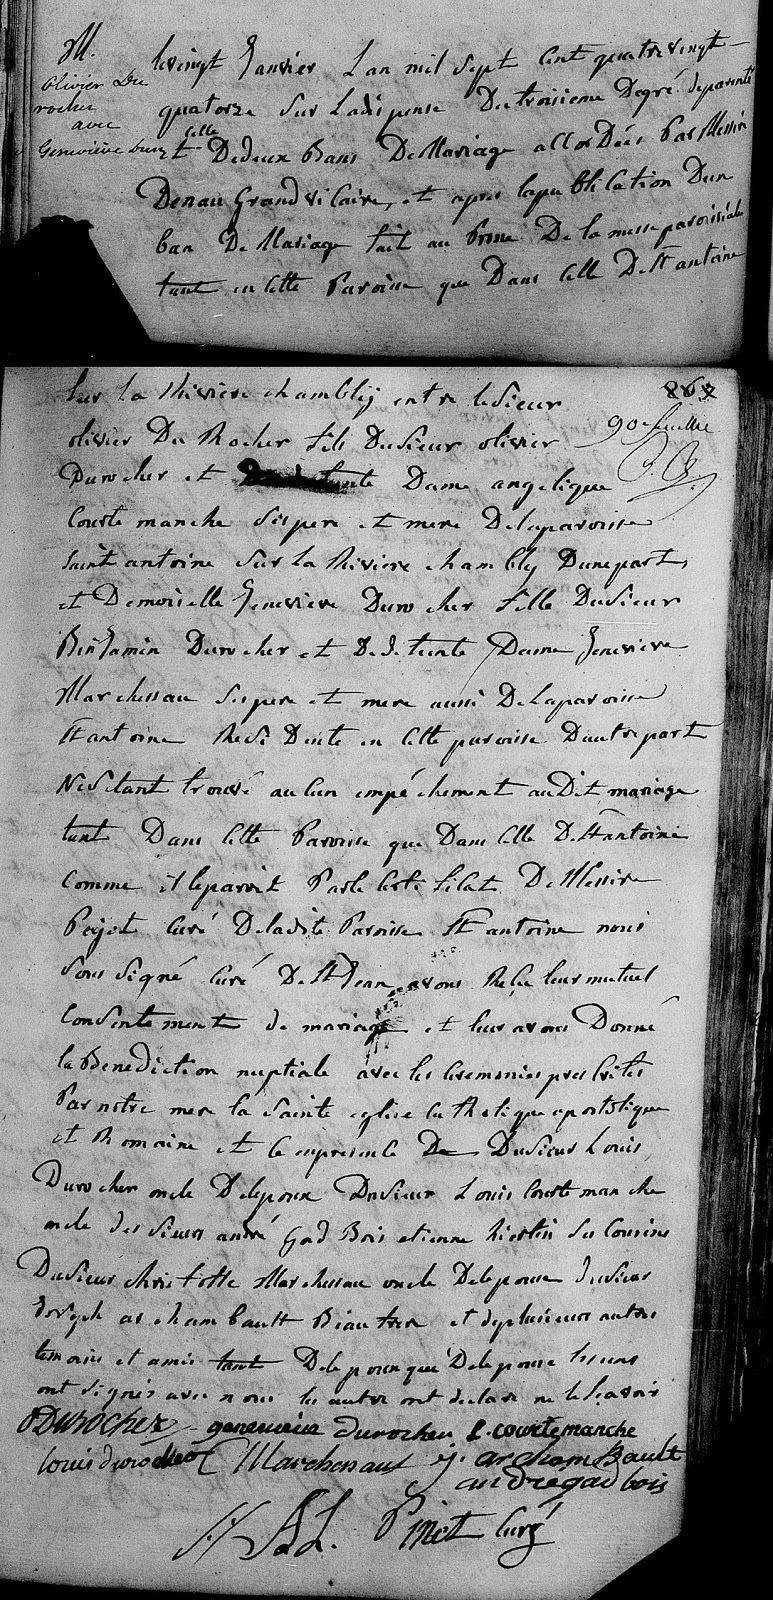 M.
Olivier Du
rocher
avec
Geneviève Duro
le vingt Janvier Lan mil sept Cent quatre vingt –
quatorze Sur Ladispense Du troisieme Degré de parenté
et celle De deux Bans De Mariage accordées Par Messire
Denau Grand vicaire, et apres la publication Dun
ban De Mariage fait au Prone De la messe paroissiale
tant en cette Paroisse que Dans celle De St antoine
Sur la Riviere chambly entre le Sieur
90e feuille
olivier Du Rocher fils Du Sieur olivier
Durocher et Dame angelique
Courte manche Ses pere et mere De la paroisse
Saint antoine Sur la Riviere chambly Dune part,
et Demoiselle Genevieve Durocher fille Du Sieur
Binjamin Durocher et De defeunte Dame Genevieve
Marchessau Ses pere et mere aussi De la paroisse
St antoine Residente en cette paroisse Dautre part
Ne Setant trouvé aucun empéchement au Dit mariage
tant Dans cette Paroisse que Dans celle De St antoine
comme il leparoit Par le Certificat De Messire
Peijet Curé De la dite Paroisse St antoine nous
Sous Signé Curé De St Jean avons Reçu leur mutuel
Consentement de mariage et leur avons Donné
la Benediction nuptiale avec les Ceremonies prescrites
Par notre mere la Sainte eglise catholique apostolique
et Romaine et ce en présence De Du Sieur Louis
Durocher oncle De lepoux Du Sieur Louis Courte manche
oncle des Sieurs andré Gad Bois etienne Ses Cousins
Du Sieur christofle Marchessau oncle De lepouse du Sieur
Joseph archambault Beau frere et de plusieurs autres
temoins et amis tant De lepoux que De lepouse les uns
ont Signés avec nous les autres ont declaré ne le Scavoir
O Durocher genevieve durocher L. courtemanche
louis durocher C Marchessaut j. archamBault
andregad bois
Pinet Curé